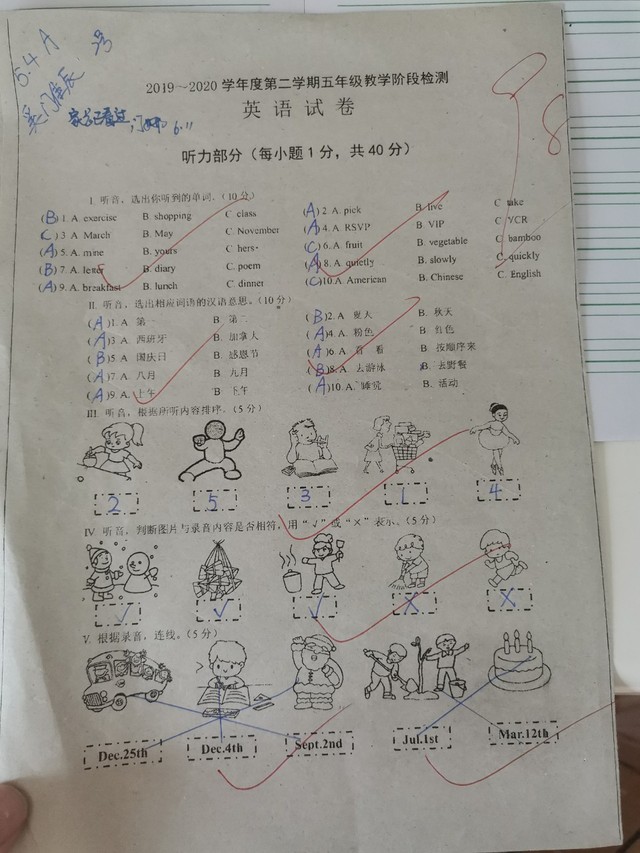 5.4 A
号
家长已看过, 6.11
98
2019～2020 学年度第二学期五年级教学阶段检测
英 语 试 卷
听力部分（每小题 1 分，共 40 分）
I. 听音，选出你听到的单词。（10 分）
(B) 1. A. exercise B. shopping C. class (A) 2. A. pick B. live C. take
(C) 3 A March B. May C. November (A) 4. A. RSVP B. VIP C. YCR
(A) 5. A. mine B. yours C. hers (C) 6. A. fruit B. vegetable C. bamboo
(B) 7. A. letter B. diary C. poem (A) 8. A. quietly B. slowly C. quickly
(A) 9. A. breakfast B. lunch C. dinner (C) 10. A. American B. Chinese C. English
II. 听音，选出相应词语的汉语意思。（10 分）
(A) 1. A 第一 B 第二 (B) 2. A. 夏天 B. 秋天
(A) 3 A. 西班牙 B. 加拿大 (A) 4. A. 粉色 B. 红色
(B) 5 A. 国庆日 B. 感恩节 (A) 6. A. 看一看 B. 按顺序来
(A) 7 A. 八月 B. 九月 (B) 8. A. 去游泳 B. 去野餐
(A) 9. A. 上午 B 下午 (A) 10. A. 睡觉 B. 活动
III. 听音，根据所听内容排序。（5 分）
2 5 3 1 4
IV. 听音，判断图片与录音内容是否相符，用“√”或“×”表示。（5 分）
√ √ √ × ×
V. 根据录音，连线。（5 分）
Dec.25th Dec.4th Sept.2nd Jul.1st Mar.12th